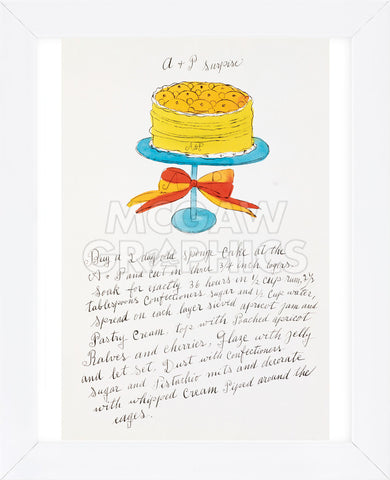 A + P Surprise
A & P
McGAW
GRAPHICS
Buy a 2 day old sponge cake at the
A + P and cut in three 3/4 inch layers.
Soak for exactly 38 hours in ½ cup rum, 2⅓
tablespoons Confectioners sugar and ½ cup water,
Spread on each layer sieved apricot jam and
Pastry Cream. tops with Poached apricot
Halves and cherries, Glaze with jelly
and let set. Dust with Confectioners
Sugar and Pistachio nuts and decorate
with whipped Cream Piped around the
edges.